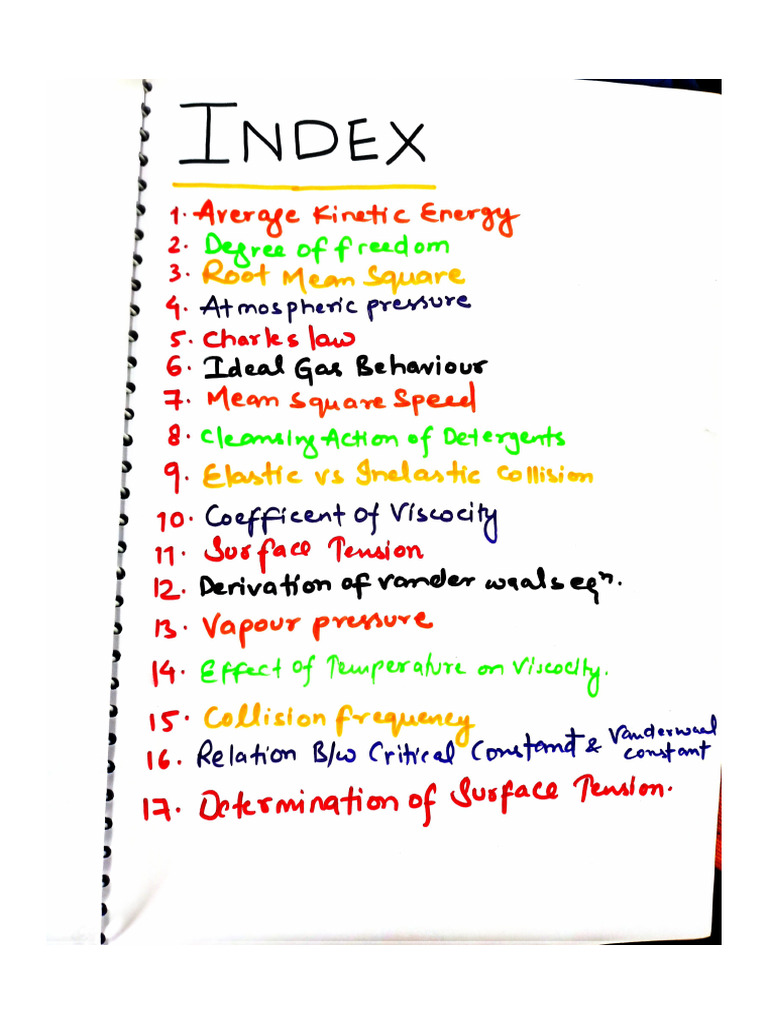 INDEX
1. Average Kinetic Energy
2. Degree of freedom
3. Root Mean Square
4. Atmospheric pressure
5. Charles law
6. Ideal Gas Behaviour
7. Mean Square Speed
8. Cleansing Action of Detergents
9. Elastic vs Inelastic Collision
10. Coefficent of Viscocity
11. Surface Tension
12. Derivation of vander waals eqⁿ.
13. Vapour pressure
14. Effect of Temperature on Viscocity.
15. Collision frequency
16. Relation B/w Critical Constant & Vanderwaal constant
17. Determination of Surface Tension.